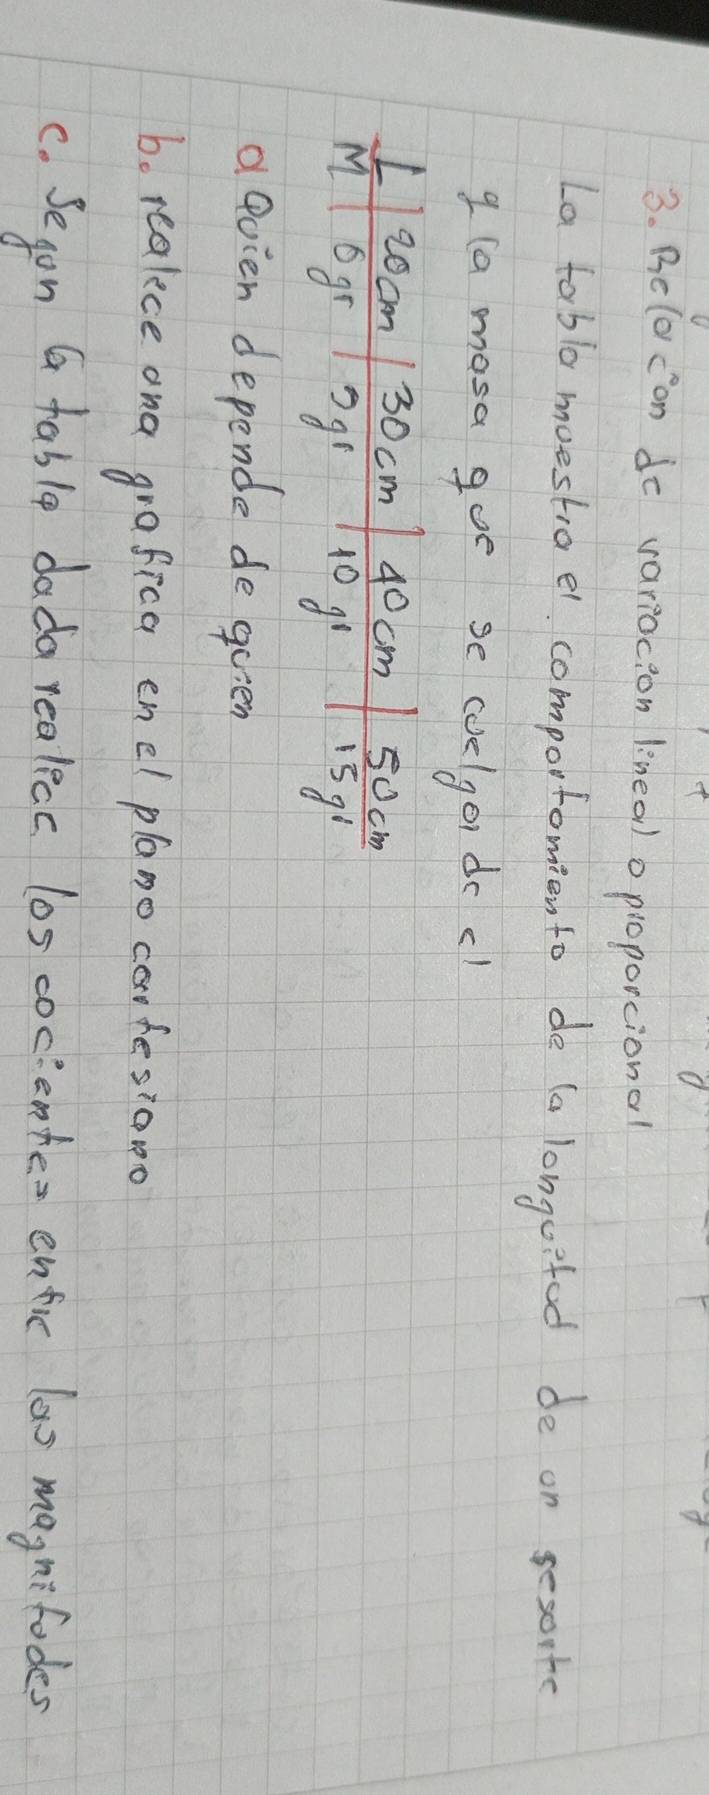 3. Relacion de variacion lineal o proporcional
La tabla muestra el comportamiento de la longuitud de un resorte
y la masa que se cuelga de el
L | 20cm | 30cm | 40cm | 50cm
M | 6gr | 9gr | 10gr | 15gr
a Quien depende de quien
b. realice una grafica en el plano cartesiano
c. Segun la tabla dada realice los cocientes entre las magnitudes